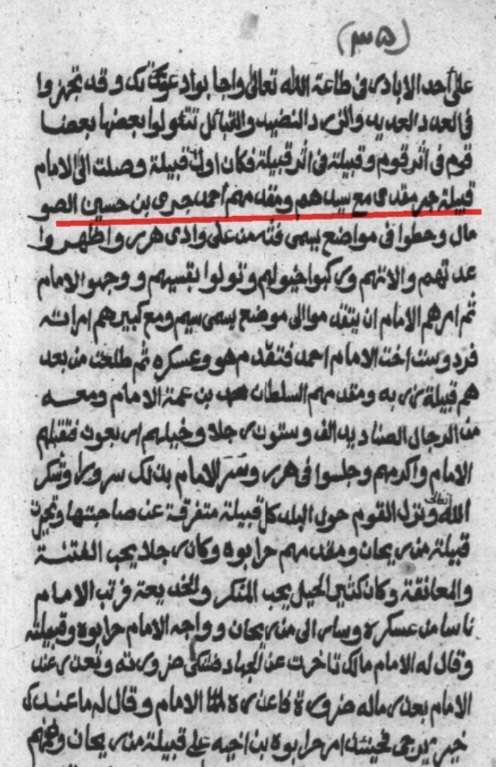 (٣٥)
على أحد الايادى فى طاعة الله تعالى واجابوا دعوتك وقد تجهزوا
فى العدد العديد والزرد النضيد والقبائل تتلوا بعضها بعضا
قوم فى اثر قوم وقبيلة فى اثر قبيلة فكان اول قبيلة وصلت الى الامام
قبيلة مع سيدهم ومقدمهم احمد جرى بن حسين الصو
مال وحطوا فى مواضع يسمى على وادى هرر واظهروا
عدتهم والاتهم وركبوا خيولهم و ووجهوا الامام
ثم امرهم الامام ان يتقدموا الى موضع يسمى سيم ومع كبيرهم امراته
فردوست اخت الامام احمد فتقدم هو وعسكره ثم طلعت من بعد
هم قبيلة ومقدمهم السلطان محمد بن عمة الامام ومعه
من الرجال الصناديد الف وستون رجلا وخيلهم اربعون فقبلهم
الامام واكرمهم وجلسوا فى هرر وسر الامام بذلك سرورا وشكر
الله تعالى ونزل القوم حول البلد كل قبيلة متفرقة عن صاحبتها
قبيلة ومقدمهم حرابوه وكان رجلا يحب الفتنة
والمعانقة وكان كثير الحيل يحب المنكر والخديعة فرتب الامام
ناسا من عسكره وسار الى وواجه الامام حرابوه وقبيلته
وقال له الامام مالك تاخرت عن الجهاد فشكى ضرورته وتعذر عند
الامام بعذر ماله ضرورة فاعذره الامام وقال له ما عندك
خير يرجى فحينئذ امر حرابوه بن اخيه على قبيلة